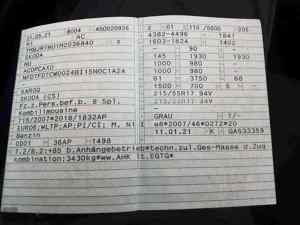 21.05.21 8004 450020936
M1 AC
SKODA
NU
ACDPCAXO
KAROQ
SKODA (CZ)
Fz.z.Pers.bef.b. 8 Spl.
Kombilimousine
715/2007*2018/1832AP
EURO6;WLTP;AP;PI/CI; M, N1 I
Benzin
0001 36AP 1498
7.2/8.2:+85 b.Anhängebetrieb*techn.zul.Ges-Masse d.Zug
kombination:3430kg*ww.AHK lt.EGTG*
2 01 110 /5000 205
4382-4496 - 1841
1603-1624 1402
- 90 -
145 1930 1930
1000 980
1000 980
61 3750 68
1500 700 5
215/55R17 94V
215/55R17 94V
GRAU 1/-
e8*2007/46*0272*20
11.01.21 K GA633359